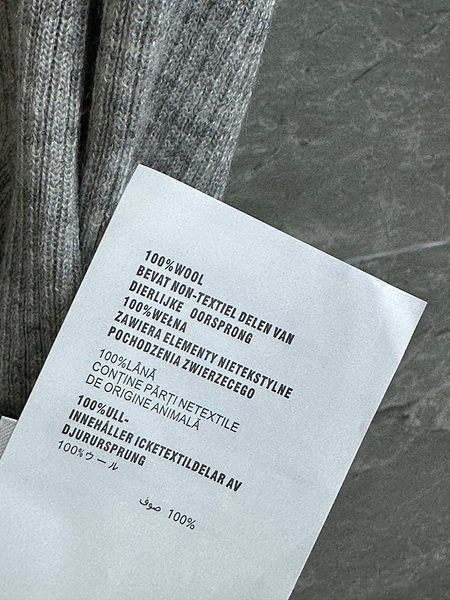 100%WOOL
BEVAT NON-TEXTIEL DELEN VAN
DIERLIJKE OORSPRONG
100%WEŁNA
ZAWIERA ELEMENTY NIETEKSTYLNE
POCHODZENIA ZWIERZECEGO
100%LÂNĂ
CONȚINE PĂRȚI NETEXTILE
DE ORIGINE ANIMALĂ
100%ULL-
INNEHÅLLER ICKETEXTILDELAR AV
DJURURSPRUNG
100%ウール
100% صوف